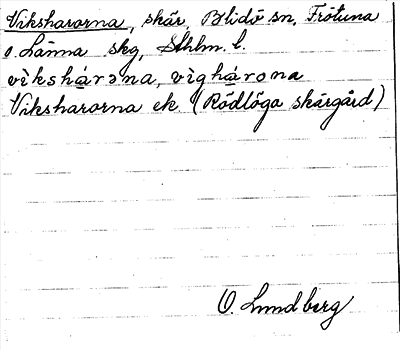 Vikshararna, skär, Blidö sn, Frötuna
o. Länna skg, Sthlm. l.
vikshárəna, vighárona
Vikshararna ek. (Rödlöga skärgård)
O. Lundberg